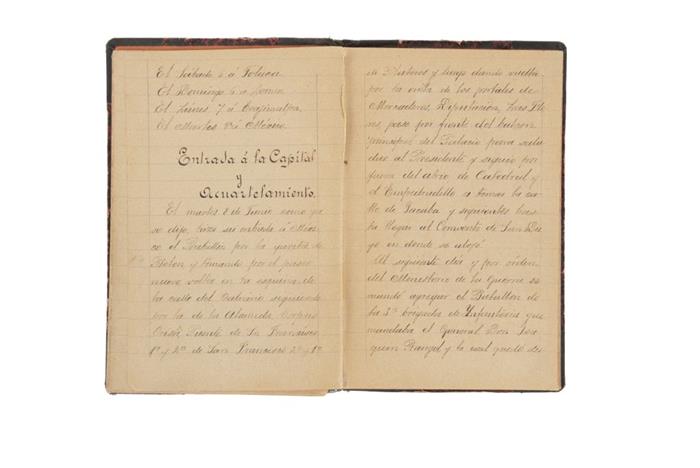 El Sábado 5 á Toluca
El Domingo 6 á Lerma
El Lúnes 7 á Cuajimalpa
El Martes 8 á México.
Entrada á la Capital
y
Acuartelamiento.
El martes 8 de Junio como ya
se dijo, hizo su entrada á Méxi-
co el Batallón por la garita de
Belen y tomando por el paseo
nuevo volteó en la esquina de
la calle del Calvario siguiendo
por la de la Alameda Corpus
Cristi, Puente de Sn Francisco,
1ª y 2ª de San Francisco 2ª y 1ª
de Plateros y luego dando vuelta
por la orilla de los portales de
Mercaderes, Diputación, Las Flo-
res, paso por frente del balcon
principal del Palacio para salu
dar al Presidente y siguió por
fuera del atrio de Catedral y
el Empedradillo a tomar la ca
lle de Tacuba y siguientes has
ta llegar al Convento de San Die
go en donde se alojó.
Al siguiente dia y por órden
del Ministerio de la Guerra se
mandó agregar el Batallon de
la 3ª brigada de Infanteria que
mandaba el General Don Joa
quin Rangel y la cual quedó de